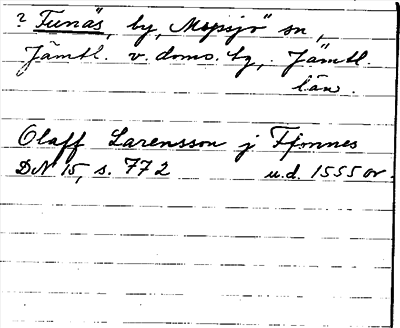 ? Funäs, by, Mopsjö sn,
Jämtl. v. doms. tg, Jämtl.
län.
Olaff Larensson j Ffonnes
DN 15, s. 772 u.d. 1555 or.